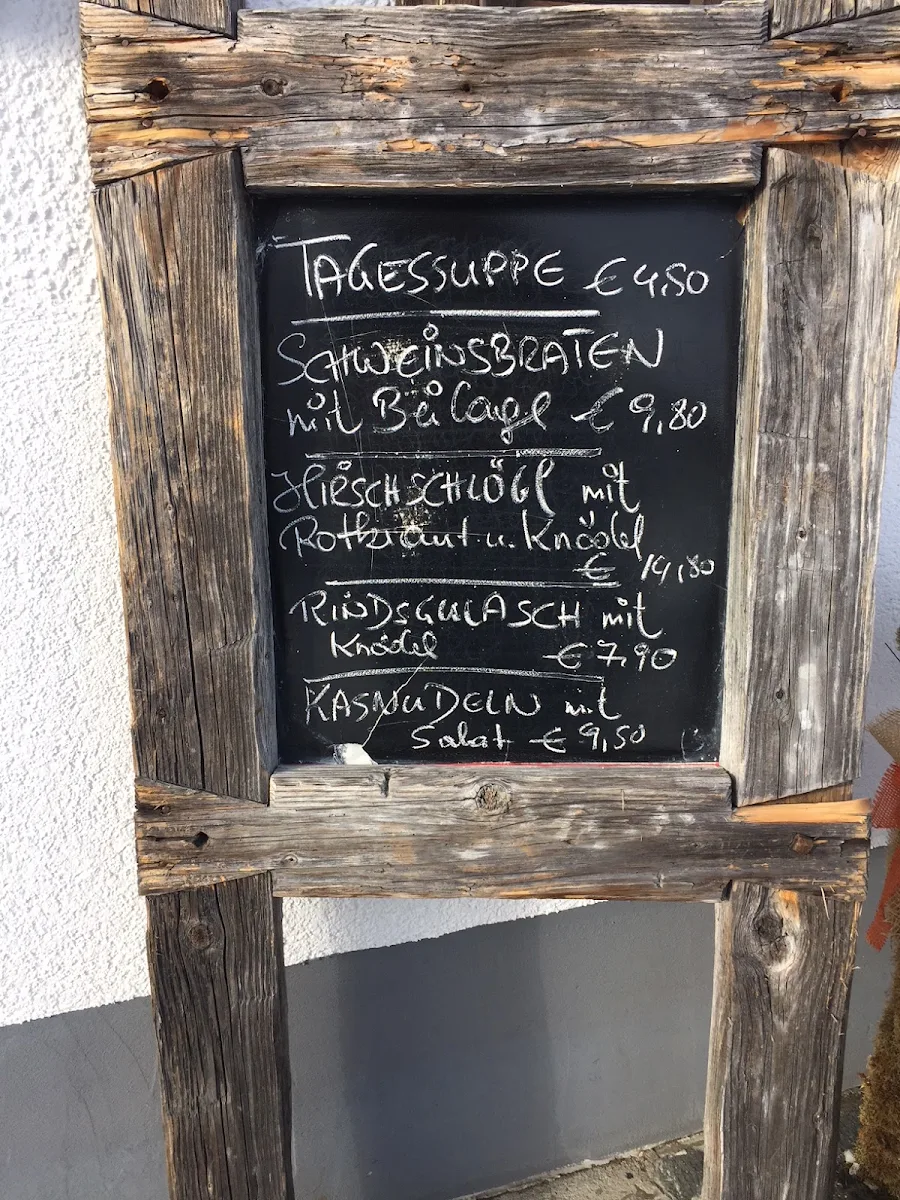 TAGESSUPPE € 4,80
SCHWEINSBRATEN
mit Beilage € 9,80
HIRSCHSCHLÖGL mit
Rotkraut u. Knödel
€ 14,80
RINDSGULASCH mit
Knödel € 7,90
KASNUDELN mit
Salat € 9,50